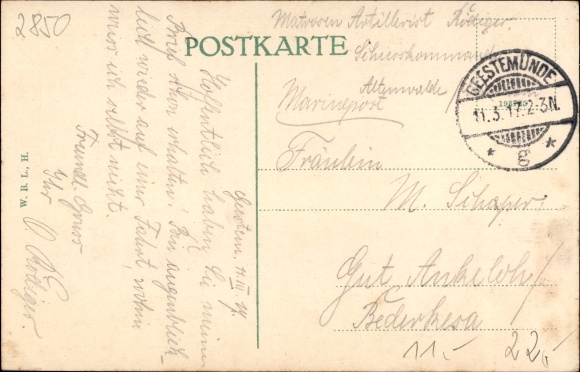 2850
POSTKARTE
Matrosen Artillerist Rödiger.
Schiesskommando
Altenwalde
Marinepost
GEESTEMÜNDE
11.3.17. 2-3N.
* g *
Fräulein
M. Schaper.
Gut Ankeloh/
Bederkesa
11.- 22.-
Geestem. 11.III 17.
Hoffentlich haben Sie meinen
Brief schon erhalten. Bin augenblick-
lich wieder auf einer Fahrt, wohin
weiss ich selbst nicht.
Freundl. Gruss
Ihr
O. Rödiger.
W. B. L., H.